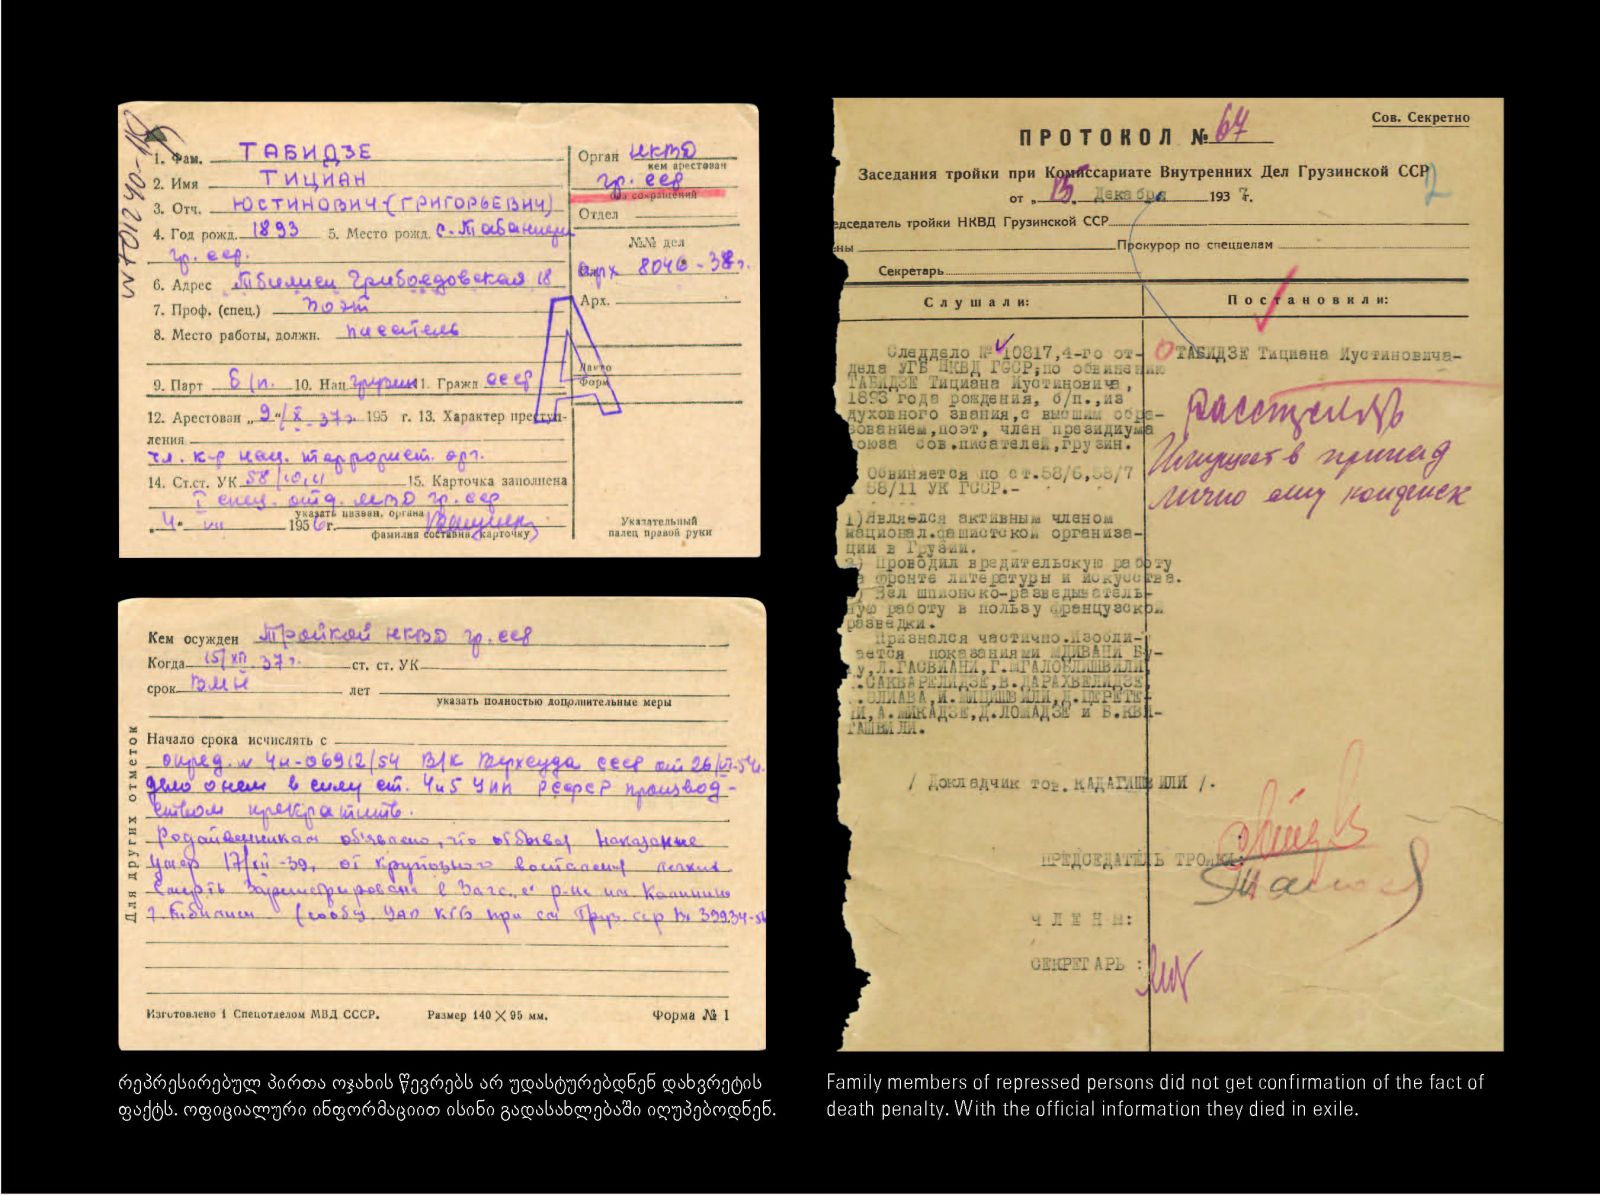 1. Фам. ТАБИДЗЕ
2. Имя ТИЦИАН
3. Отч. ЮСТИНОВИЧ (ГРИГОРЬЕВИЧ)
4. Год рожд. 1893 5. Место рожд. с.
гр. сср.
6. Адрес Тбилиси Грибоедовская 18
7. Проф. (спец.) поэт
8. Место работы, должн. писатель
9. Парт б/п. 10. Нац. грузин 11. Гражд ссср
12. Арестован „9"/X-37г. 195 г. 13. Характер преступ-
ления
чл. к-р нац. террорист. орг.
14. Ст.ст. УК 58/10,11 15. Карточка заполнена
I спец. отд. МВД гр. сср
указать назван, органа
„4" VII 1956г.
фамилия составив. карточку)
Орган НКВД
кем арестован
гр. сср
без сокращений
Отдел
№№ дел
арх 8046-38г.
Арх.
Дакто
Форм
А
Указательный
палец правой руки
Кем осужден Тройкой НКВД гр. сср
Когда 15/XII 37г. ст. ст. УК
срок ВМН лет
указать полностью дополнительные меры
Начало срока исчислять с
Для других отметок
опред. № 4н-06912/54 В/К Верхсуда СССР от 26/
дело о нем в силу ст. 4п5 УПК РСФСР производ-
ством прекратить.
Родственникам объявлено, что отбывая наказание
умер 17/XII-39, от крупозного воспаления легких
Смерть Зарегистрирована в Загс. р-не им Калинина
г. Тбилиси (сообщ. УАО КГБ при см Груз. сср №
Изготовлено 1 Спецотделом МВД СССР. Размер 140 × 95 мм. Форма № 1
Сов. Секретно
ПРОТОКОЛ № 67
Заседания тройки при Комиссариате Внутренних Дел Грузинской ССР
2
от „15 Декабря 1937 г.
едседатель тройки НКВД Грузинской ССР
ны Прокурор по спецделам
Секретарь
Слушали: Постановили:
Следдело № 10817,4-го от-
дела УГБ НКВД ГССР,по обвинению
ТАБИДЗЕ Тициана Иустиновича,
1893 года рождения, б/п.,из
духовного звания,с высшим обра-
зованием,поэт, член президиума
союза сов.писателей,грузин.
Обвиняется по ст.58/6,58/7
58/11 УК ГССР.-
1)Являлся активным членом
национал.фашистской организа-
ции в Грузии.
2) Проводил вредительскую работу
на фронте литературы и искусства.
3) Вел шпионско-разведыватель-
ную работу в пользу французской
разведки.
Признался частично.Изобли-
чается показаниями МДИВАНИ Бу-
ду,Л.ГАСВИАНИ,Г.МГАЛОБЛИШВИЛИ,
.САКВАРЕЛИДЗЕ,В.ДАРАХВЕЛИДЗЕ,
.ЭЛИАВА,И.МИЦИШВИЛИ,Д.ЦЕРЕТЕ-
ЛИ,А.МИКАДЗЕ,Д.ЛОМАДЗЕ и Б.КВИ-
ТАШВИЛИ.
ТАБИДЗЕ Тициана Иустиновича-
Расстрелять
Имуществ принад
лично ему конфиск
/ Докладчик тов. КАДАГИШВИЛИ /.
ПРЕДСЕДАТЕЛЬ ТРОЙКИ:
ЧЛЕНЫ:
СЕКРЕТАРЬ :
რეპრესირებულ პირთა ოჯახის წევრებს არ უდასტურებდნენ დახვრეტის
ფაქტს. ოფიციალური ინფორმაციით ისინი გადასახლებაში იღუპებოდნენ.
Family members of repressed persons did not get confirmation of the fact of
death penalty. With the official information they died in exile.